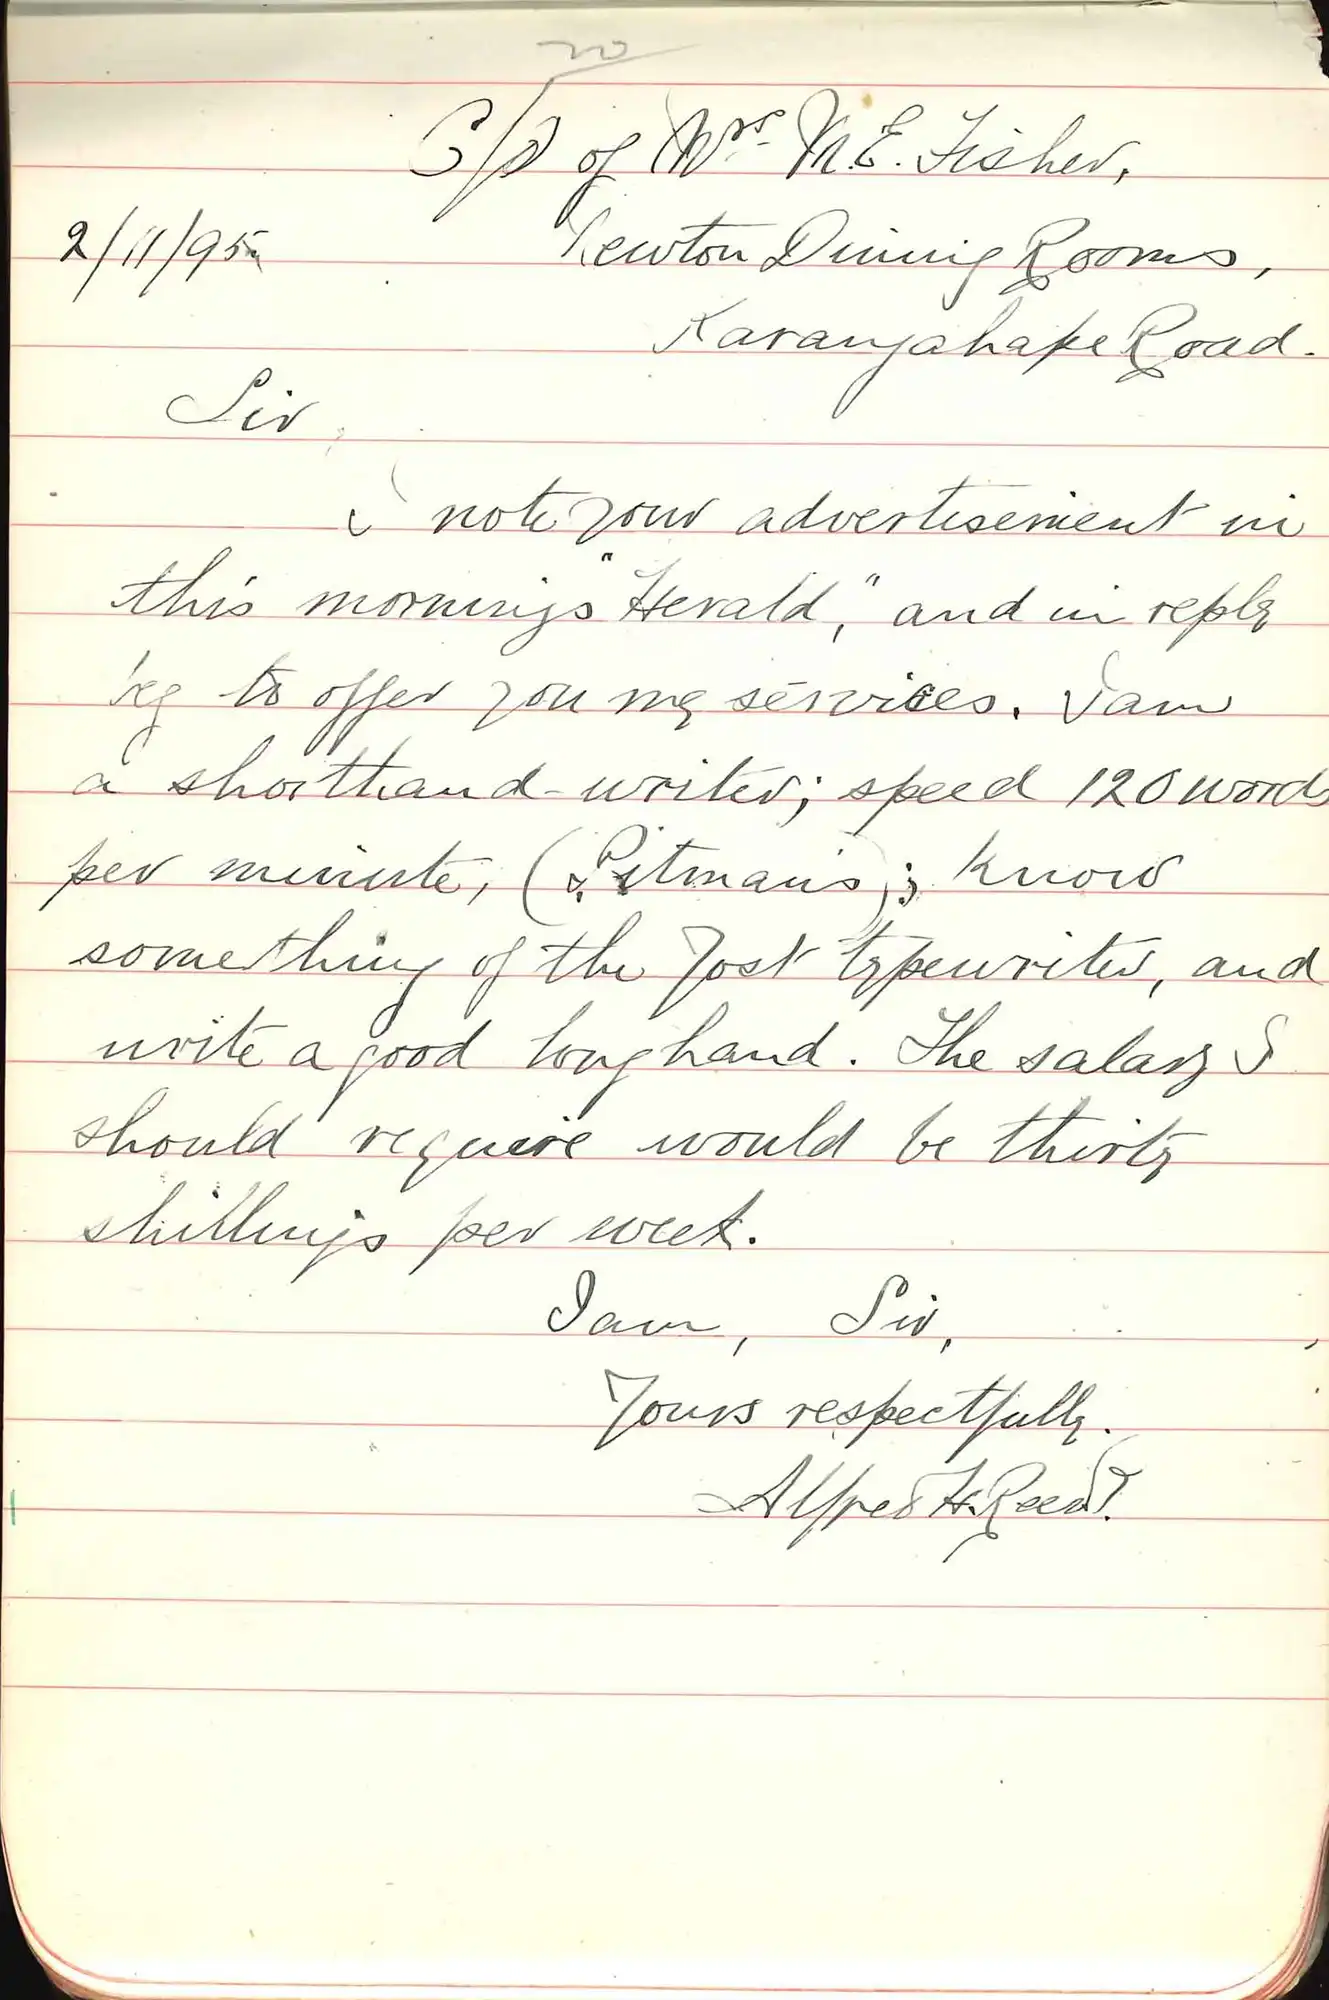 C/o of Mrs. M. E. Fisher,
2/11/95. Newton Dining Rooms,
Karangahape Road.
Sir,
I note your advertisement in
this mornings "Herald," and in reply
beg to offer you my services. I am
a shorthand-writer; speed 120 words
per minute, (Pitman's); know
something of the Yost typewriter, and
write a good longhand. The salary I
should require would be thirty
shillings per week.
I am, Sir,
Yours respectfully.
Alfred H. Reed.